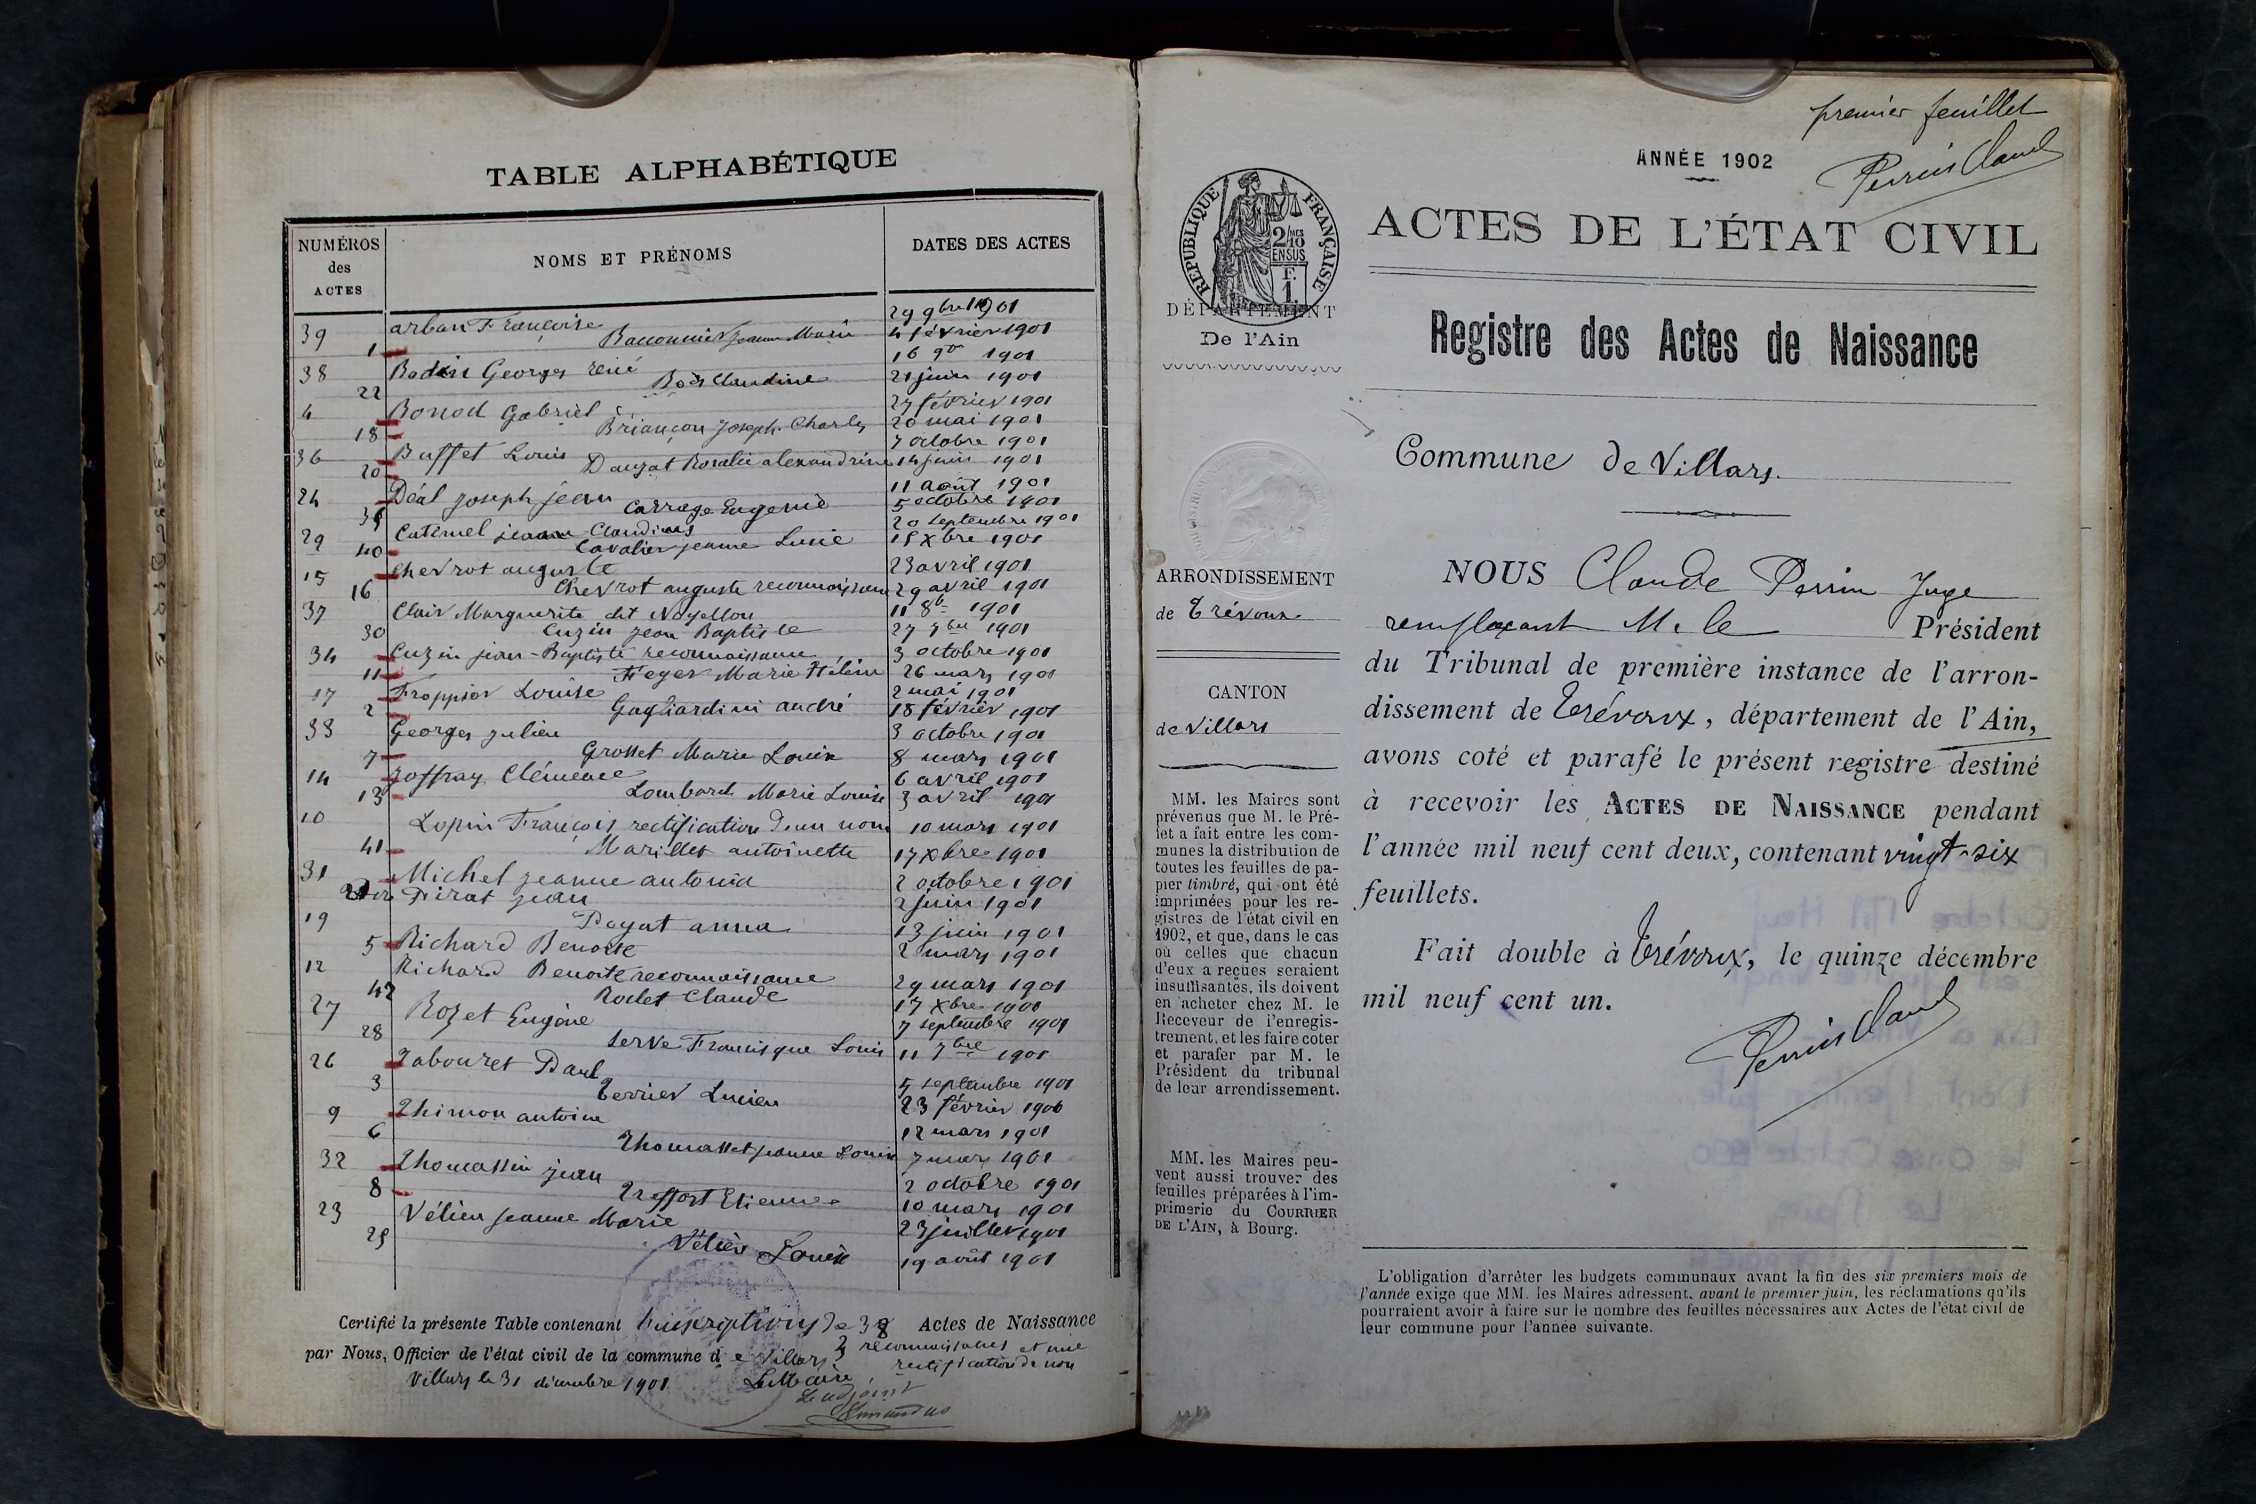 TABLE ALPHABÉTIQUE
NUMÉROS
des
ACTES
NOMS ET PRÉNOMS
DATES DES ACTES
39 arban Françoise 29 9bre 1901
1 Jeanne Marie 4 février 1901
38 Badin Georges rené 16 9bre 1901
22 Bois Claudine 21 juin 1901
4 Bonod Gabriel 27 février 1901
18 Briançon Joseph Charles 20 mai 1901
36 Buffet Louis 7 octobre 1901
20 Dauzat Rosalie alexandrine 14 juin 1901
24 Déal Joseph jean 11 août 1901
35 Carrage Eugenie 5 octobre 1901
29 Catimel Claudius 20 septembre 1901
40 Cavalier jeanne Lucie 15 xbre 1901
15 Chevrot auguste 23 avril 1901
16 Chevrot auguste reconnaissance 29 avril 1901
37 Clair Marguerite dit Noyellou 11 8b 1901
30 Cuzin Jean Baptiste 27 7bre 1901
34 Cuzin jean-Baptiste reconnaissance 3 octobre 1901
11 Feyer Marie Hélène 26 mars 1901
17 Frappier Louise 2 mai 1901
2 Gagliardini andré 18 février 1901
33 Georges julien 3 octobre 1901
7 Grosset Marie Louise 8 mars 1901
14 Joffray Clémence 6 avril 1901
13 Lombard Marie Louise 3 avril 1901
10 Lopin François rectification d'un nom 10 mars 1901
41 Marillet antoinette 17 xbre 1901
31 Michel jeanne antonia 2 octobre 1901
Pirat jean 2 juin 1901
19 Poyat anna 13 juin 1901
5 Richard Benoite 2 mars 1901
12 Richard Benoite reconnaissance 29 mars 1901
42 Rolet Claude 17 xbre 1901
27 Rozet Eugène 7 septembre 1901
28 Serve Francisque Louis 11 7bre 1901
26 Tabouret Paul 5 septembre 1901
3 Terrier Lucien 23 février 1906
9 Thimon antoine 12 mars 1901
6 Thomasset jeanne Louise 7 mars 1901
32 Thomassin jean 2 octobre 1901
8 Treffort Etienne 10 mars 1901
23 Vélien Jeanne Marie 23 juillet 1901
25 Vélien Louise 19 août 1901
Certifié la présente Table contenant inscriptions de 38 Actes de Naissance
par Nous, Officier de l'état civil de la commune de Villars 3 reconnaissances et une
rectification de nom
Villars le 31 décembre 1901
Le Maire
L'adjoint
premier feuillet
Perrin Claude
ANNÉE 1902
ACTES DE L'ÉTAT CIVIL
RÉPUBLIQUE FRANÇAISE
2/10 MES
EN SUS
F.
1.
DÉPARTEMENT
De l'Ain
Registre des Actes de Naissance
Commune de Villars.
ARRONDISSEMENT
de Trévoux
CANTON
de Villars
NOUS Claude Perrin Juge
remplaçant M. le Président
du Tribunal de première instance de l'arron-
dissement de Trévoux, département de l'Ain,
avons coté et parafé le présent registre destiné
à recevoir les ACTES DE NAISSANCE pendant
l'année mil neuf cent deux, contenant vingt-six
feuillets.
Fait double à Trévoux, le quinze décembre
mil neuf cent un.
Perrin Claude
MM. les Maires sont
prévenus que M. le Pré-
fet a fait entre les com-
munes la distribution de
toutes les feuilles de pa-
pier timbré, qui ont été
imprimées pour les re-
gistres de l'état civil en
1902, et que, dans le cas
où celles que chacun
d'eux a reçues seraient
insuffisantes, ils doivent
en acheter chez M. le
Receveur de l'enregis-
trement, et les faire coter
et parafer par M. le
Président du tribunal
de leur arrondissement.
MM. les Maires peu-
vent aussi trouver des
feuilles préparées à l'im-
primerie du COURRIER
DE L'AIN, à Bourg.
L'obligation d'arrêter les budgets communaux avant la fin des six premiers mois de
l'année exige que MM. les Maires adressent, avant le premier juin, les réclamations qu'ils
pourraient avoir à faire sur le nombre des feuilles nécessaires aux Actes de l'état civil de
leur commune pour l'année suivante.